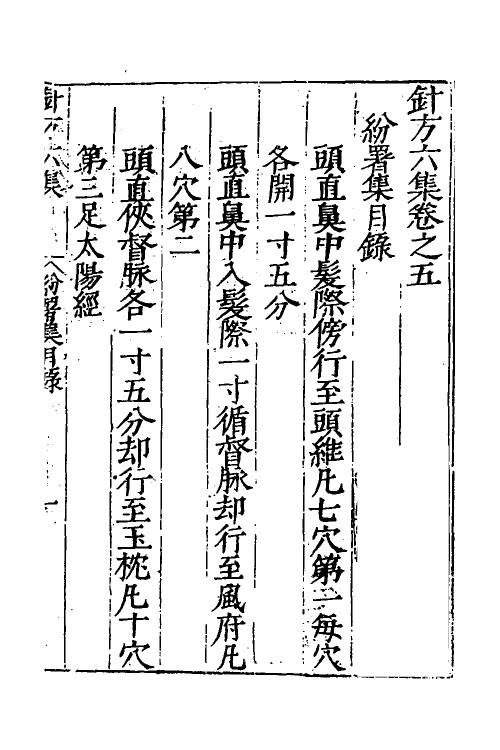 針方六集卷之五
紛署集目錄
頭直鼻中髮際傍行至頭維凡七穴第一每穴
各開一寸五分
頭直鼻中入髮際一寸循督脉却行至風府凡
八穴第二
頭直俠督脉各一寸五分却行至玉枕凡十穴
第三足太陽經
針方六集
紛署集目錄
一